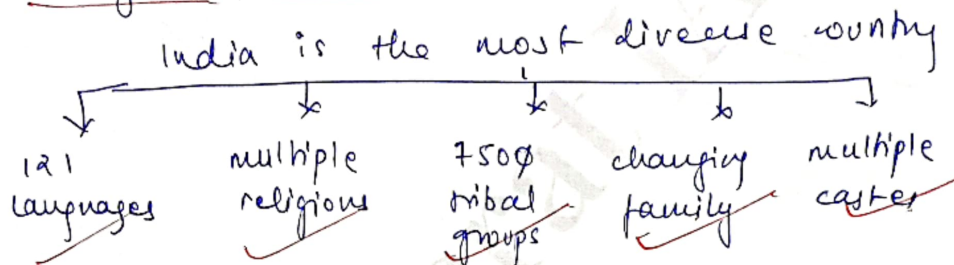 India is the most diverse country
121 languages
multiple religions
750 tribal groups
changing family
multiple castes